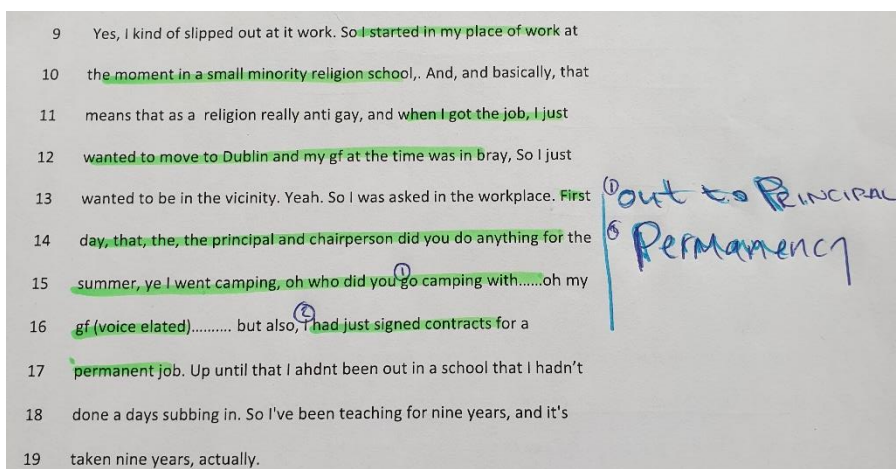 9 Yes, I kind of slipped out at it work. So I started in my place of work at
10 the moment in a small minority religion school,. And, and basically, that
11 means that as a religion really anti gay, and when I got the job, I just
12 wanted to move to Dublin and my gf at the time was in bray, So I just
13 wanted to be in the vicinity. Yeah. So I was asked in the workplace. First ① out to PRINCIPAL
14 day, that, the, the principal and chairperson did you do anything for the Permanency
15 summer, ye I went camping, oh who did you ① go camping with......oh my
16 gf (voice elated).......... but also, ② I had just signed contracts for a
17 permanent job. Up until that I ahdnt been out in a school that I hadn't
18 done a days subbing in. So I've been teaching for nine years, and it's
19 taken nine years, actually.